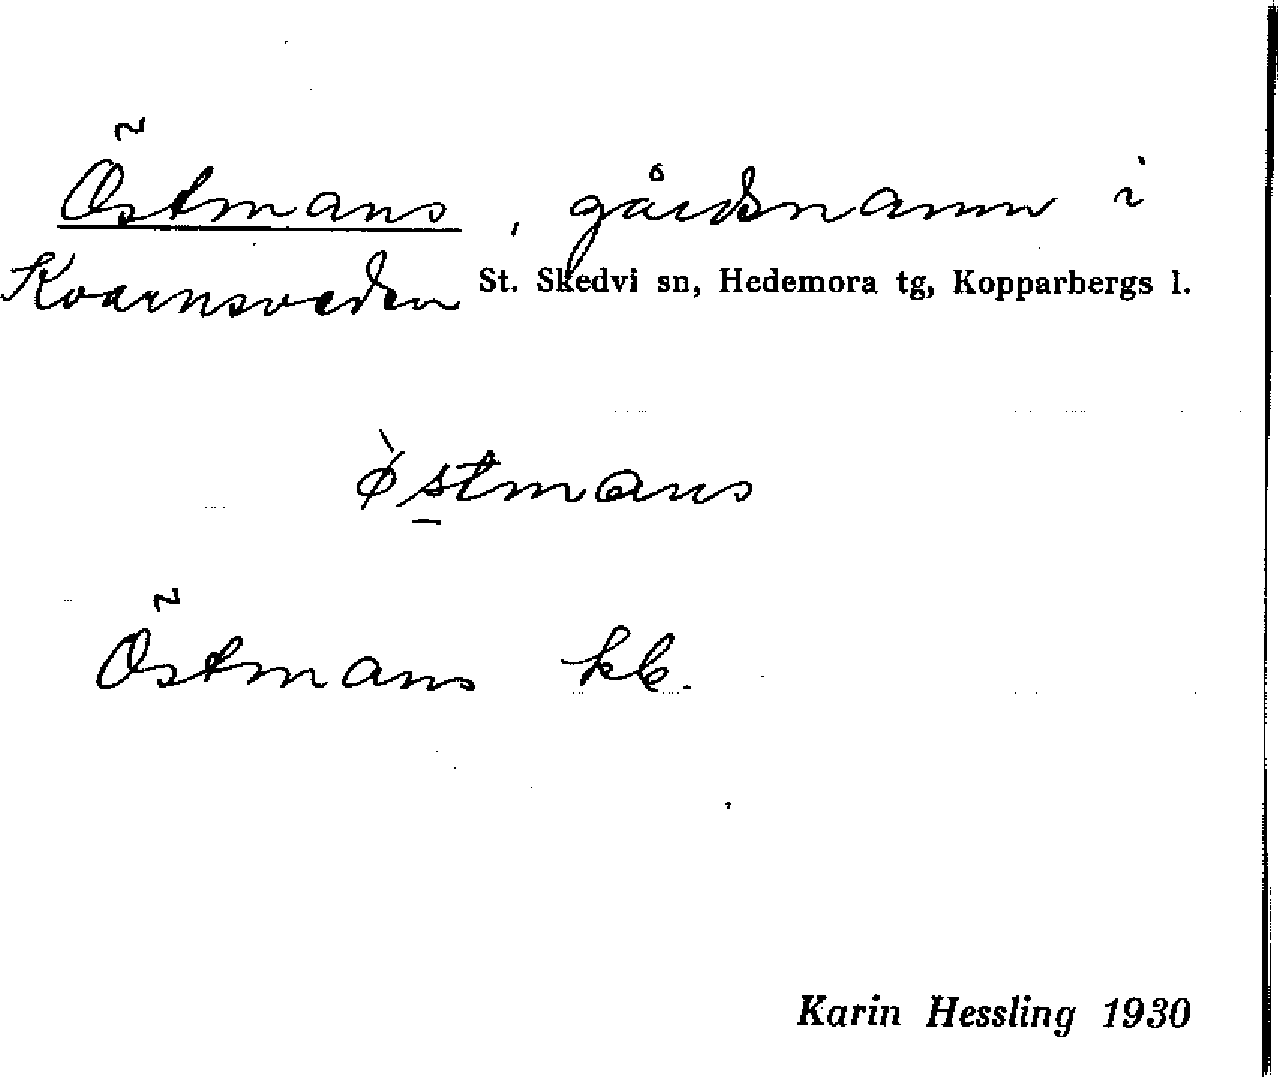 Östmans, gårdsnamn i
Kvarnsveden St. Skedvi sn, Hedemora tg, Kopparbergs l.
ø̀s̲tmans
Östmans kb.
Karin Hessling 1930